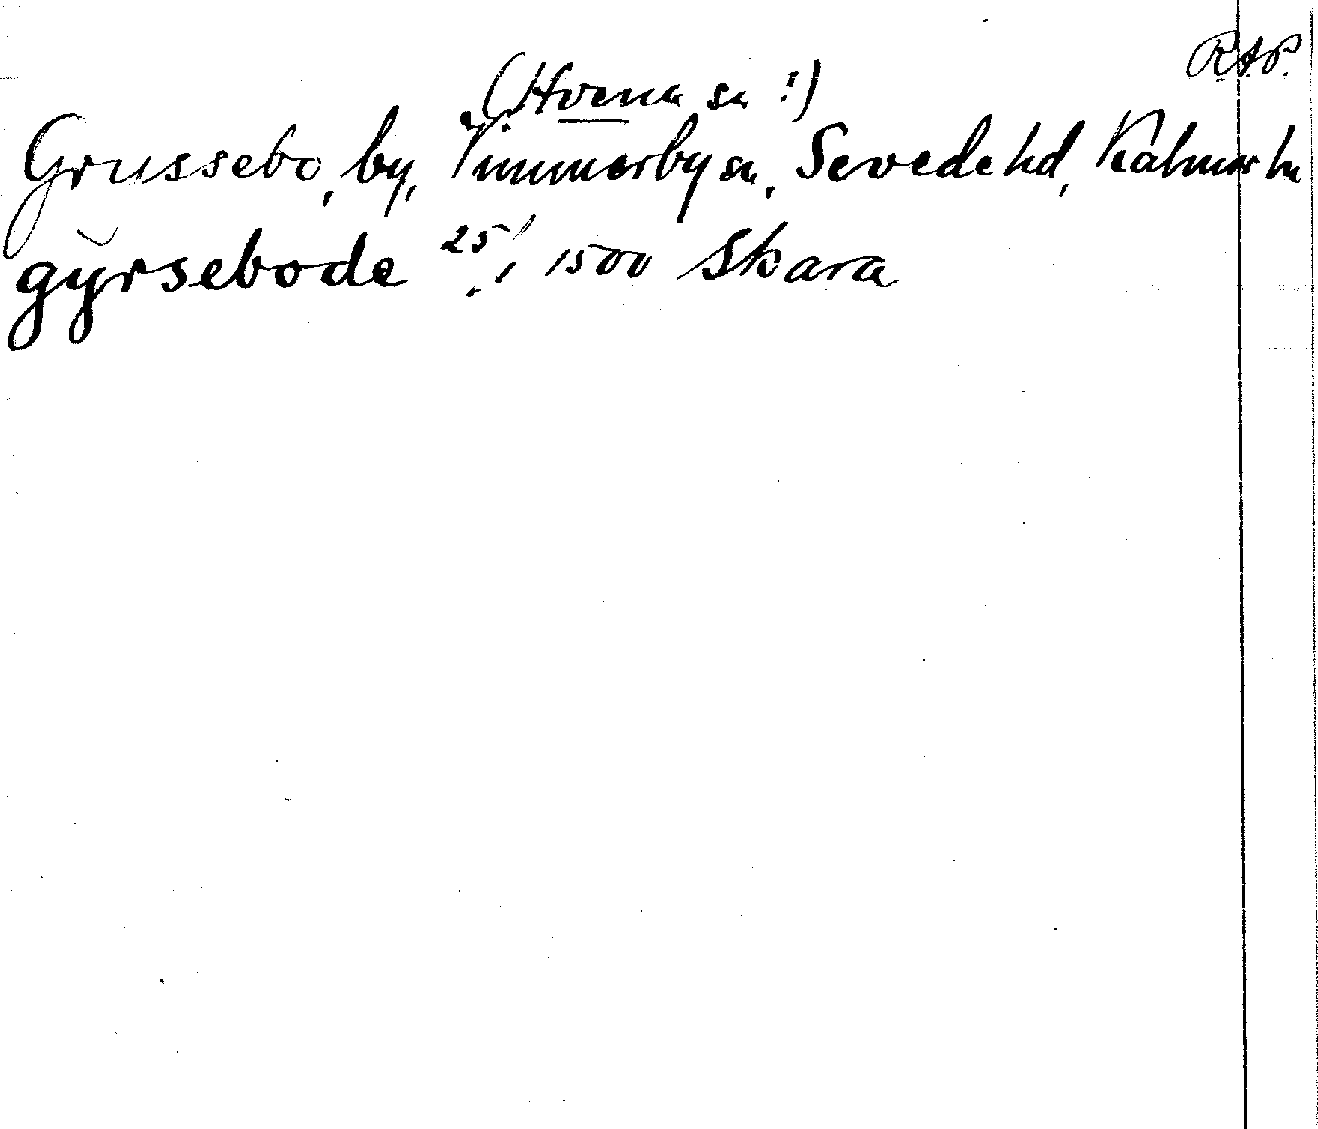 R.A.P.
(Hvena sn !)
Grussebo, by, Vimmerby sn, Sevede hd, Kalmar ln
gy̆rsebode 25/ 1500 Skara